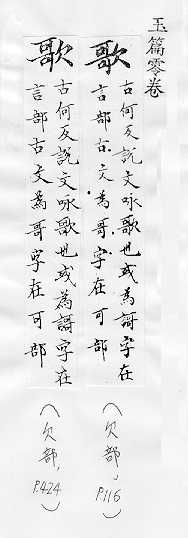 玉篇零卷
歌
古何反説文咏歌也或為謌字在
言部古文為哥字在可部
(欠部, P.116)
歌
古何反説文咏歌也或為謌字在
言部古文為哥字在可部
(欠部, P.424)